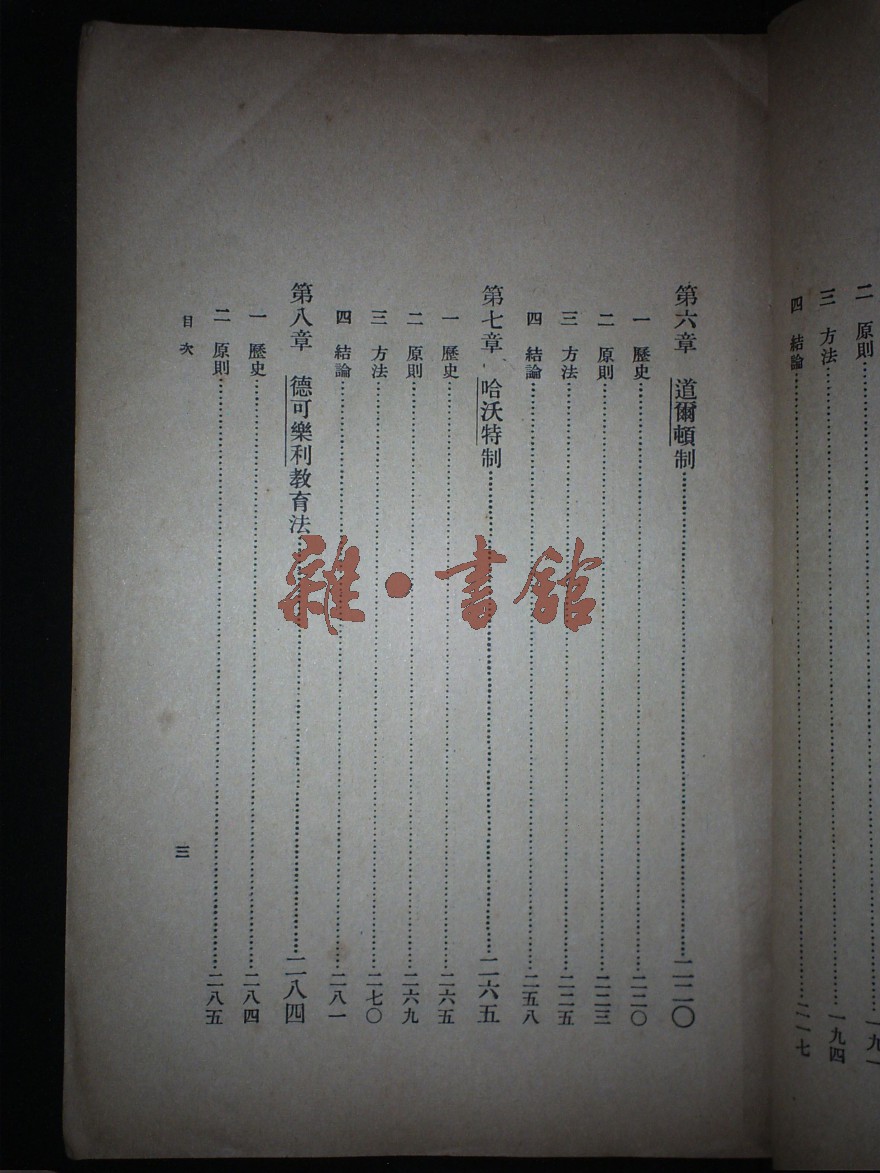 二 原則
三 方法……一九四
四 結論……二一七
第六章 道爾頓制……二二〇
一 歷史……二二〇
二 原則……二二三
三 方法……二二五
四 結論……二五八
第七章 哈沃特制……二六五
一 歷史……二六五
二 原則……二六九
三 方法……二七〇
四 結論……二八一
第八章 德可樂利教育法……二八四
一 歷史……二八四
二 原則……二八五
目次 三
雜·書館